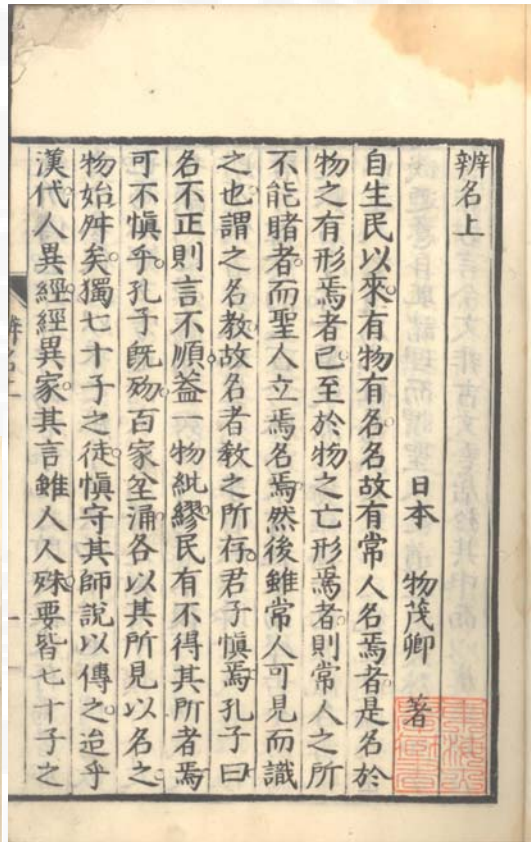 辨名上
日本 物茂卿 著
自生民以來。有物有名。名故有常人名焉者。是名於
物之有形焉者已。至於物之亡形焉者。則常人之所
不能睹者。而聖人立焉名焉。然後雖常人可見而識
之也。謂之名教。故名者教之所存。君子慎焉。孔子曰
名不正則言不順。蓋一物紕繆。民有不得其所者焉
可不慎乎。孔子既歿。百家坌涌。各以其所見以名之。
物始舛矣。獨七十子之徒。慎守其師說以傳之。迨乎
漢代人異經。經異家。其言雖人人殊。要皆七十子之